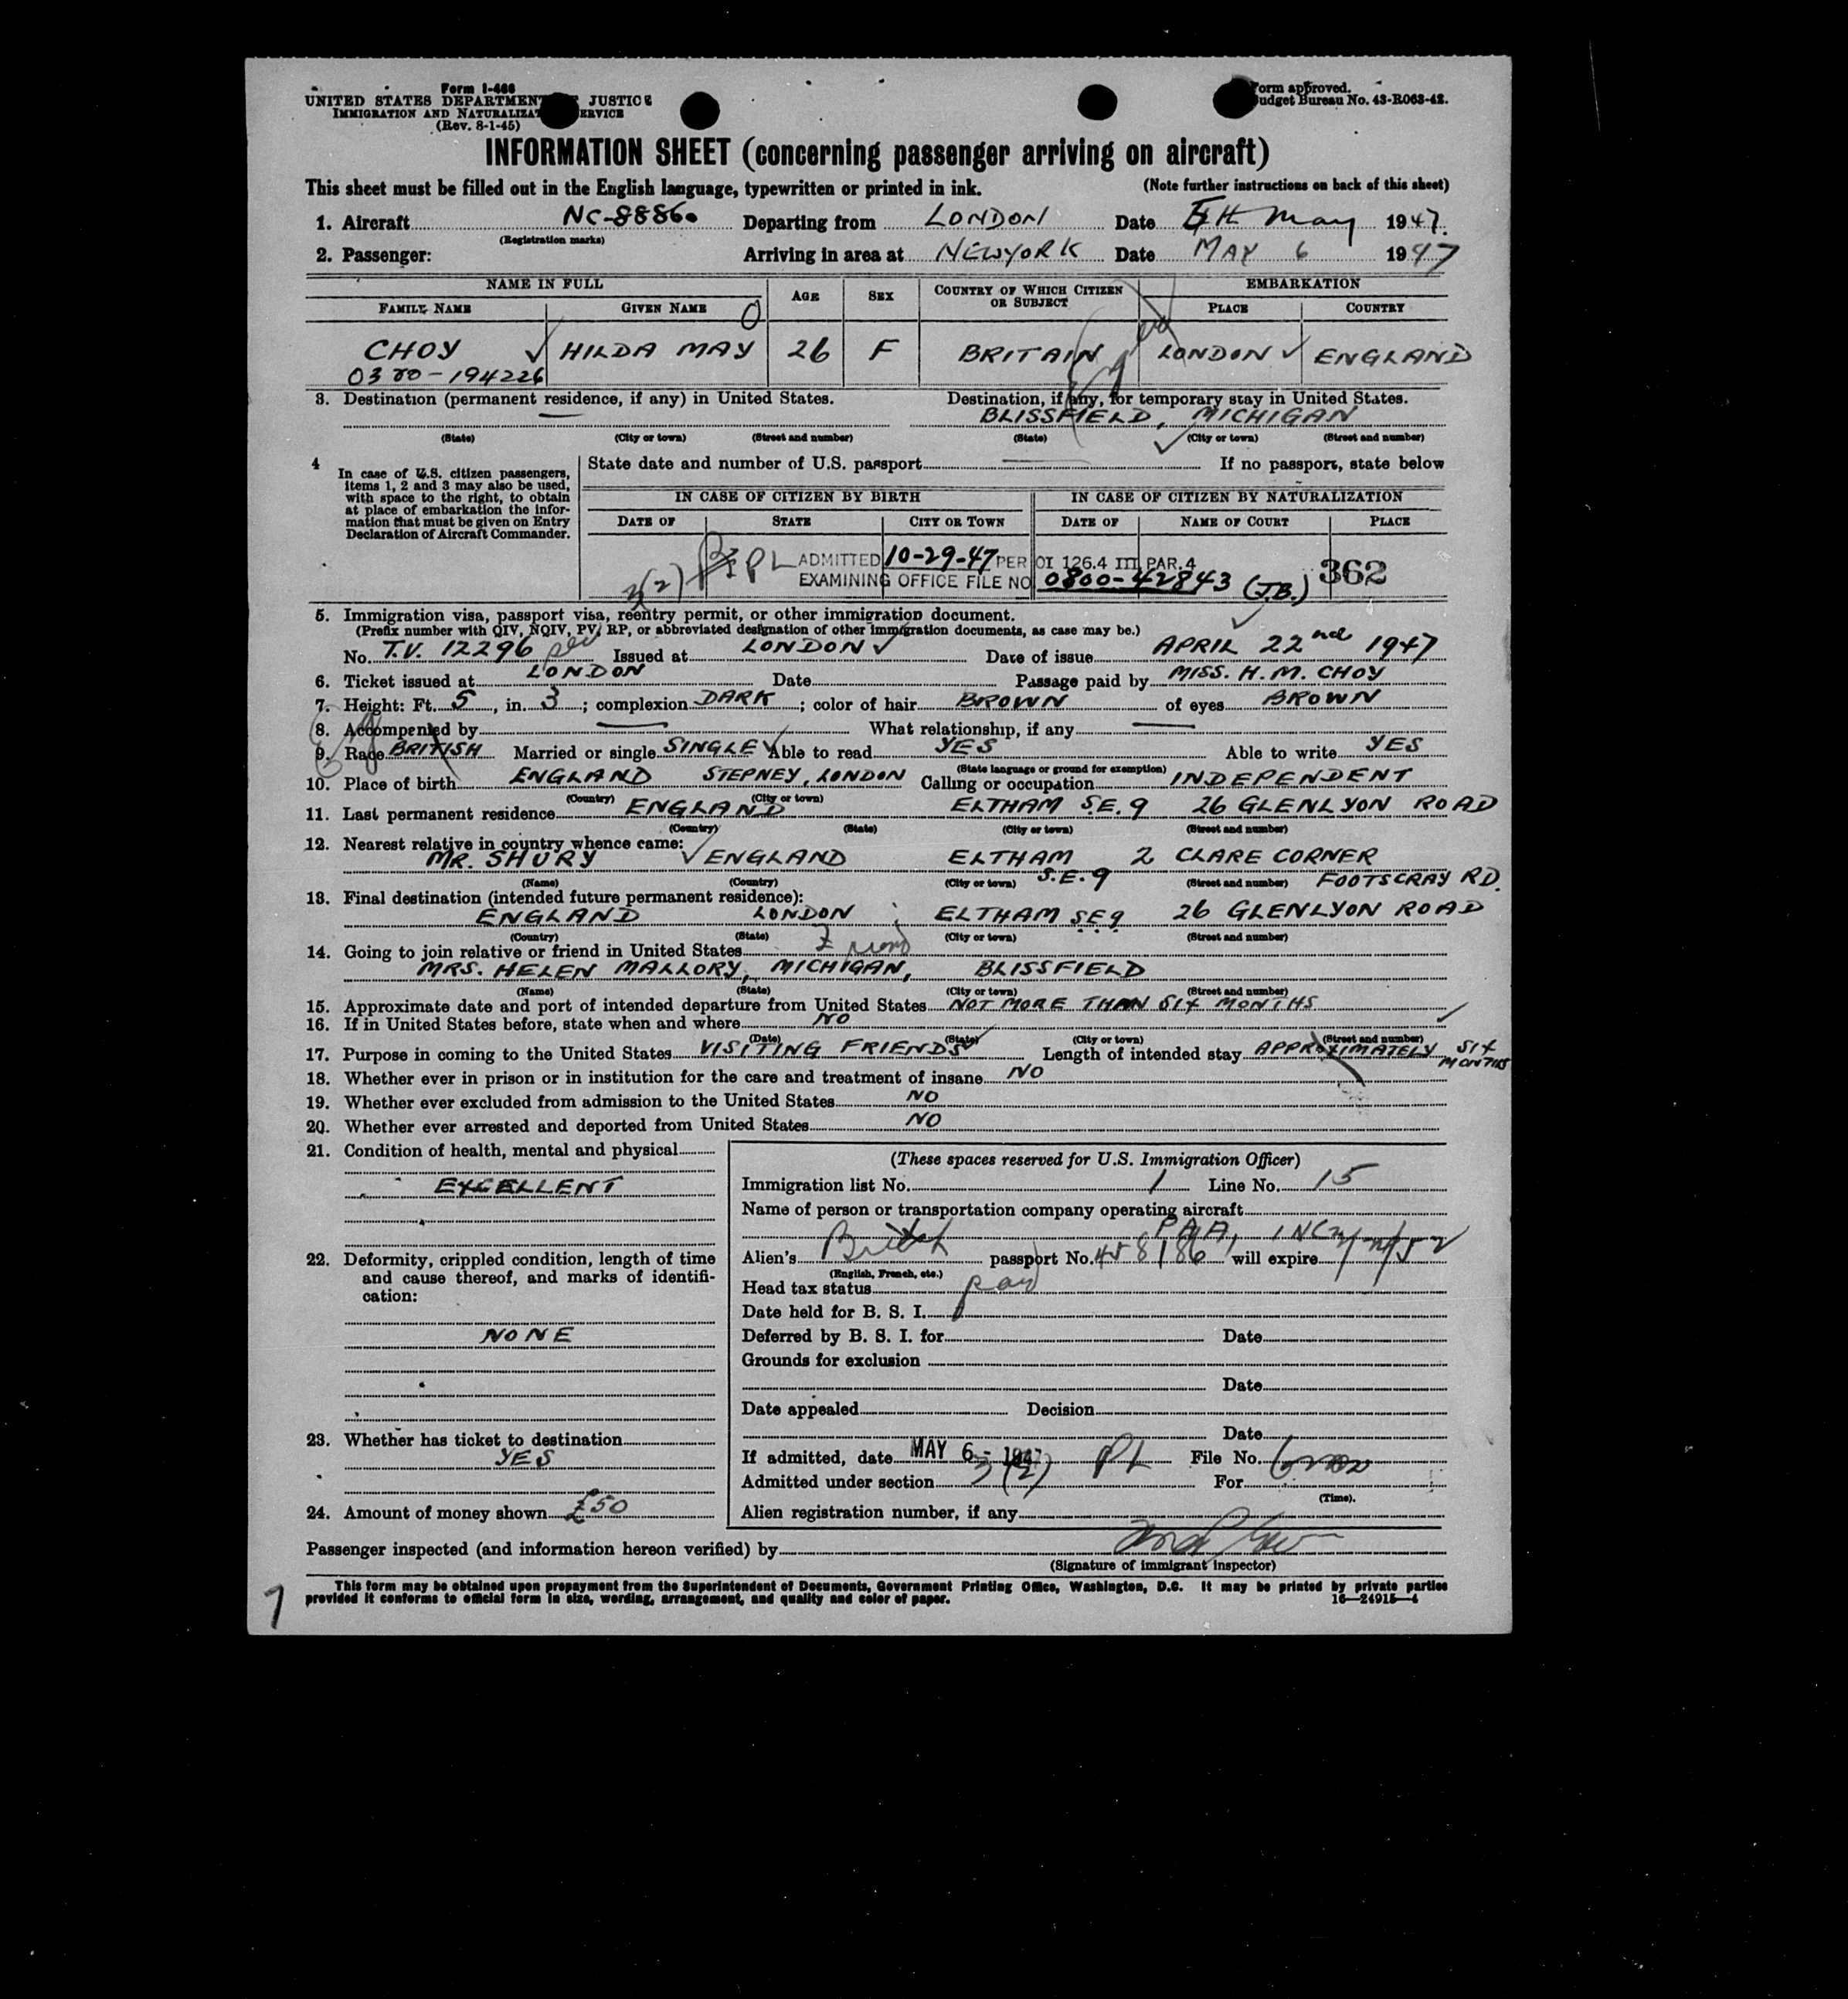 Form I-466
UNITED STATES DEPARTMENT JUSTICE
IMMIGRATION AND NATURALIZAT ERVICE
(Rev. 8-1-45)
Form approved.
Budget Bureau No. 43-R063-42.
INFORMATION SHEET (concerning passenger arriving on aircraft)
This sheet must be filled out in the English language, typewritten or printed in ink. (Note further instructions on back of this sheet)
1. Aircraft NC-88860 Departing from LONDON Date 5TH May 1947.
(Registration marks)
2. Passenger: Arriving in area at NEWYORK Date MAY 6 1947
NAME IN FULL AGE SEX COUNTRY OF WHICH CITIZEN OR SUBJECT EMBARKATION
FAMILY NAME GIVEN NAME PLACE COUNTRY
CHOY HILDA MAY 26 F BRITAIN LONDON ENGLAND
0300-194226
3. Destination (permanent residence, if any) in United States. Destination, if any, for temporary stay in United States.
BLISSFIELD, MICHIGAN
(State) (City or town) (Street and number) (State) (City or town) (Street and number)
4 In case of U.S. citizen passengers, items 1, 2 and 3 may also be used, with space to the right, to obtain at place of embarkation the information that must be given on Entry Declaration of Aircraft Commander.
State date and number of U.S. passport If no passport, state below
IN CASE OF CITIZEN BY BIRTH IN CASE OF CITIZEN BY NATURALIZATION
DATE OF STATE CITY OR TOWN DATE OF NAME OF COURT PLACE
3(2) PL ADMITTED 10-29-47 PER OI 126.4 III PAR. 4 362
EXAMINING OFFICE FILE NO 0800-42843 (J.B.)
5. Immigration visa, passport visa, reentry permit, or other immigration document.
(Prefix number with QIV, NQIV, PV, RP, or abbreviated designation of other immigration documents, as case may be.)
No. T.V. 12296 Issued at LONDON Date of issue APRIL 22nd 1947
6. Ticket issued at LONDON Date Passage paid by MISS. H. M. CHOY
7. Height: Ft. 5, in. 3; complexion DARK; color of hair BROWN of eyes BROWN
8. Accompanied by What relationship, if any
9. Race BRITISH Married or single SINGLE Able to read YES Able to write YES
(State language or ground for exemption)
10. Place of birth ENGLAND STEPNEY, LONDON Calling or occupation INDEPENDENT
(Country) (City or town)
11. Last permanent residence ENGLAND ELTHAM S.E. 9 26 GLENLYON ROAD
(Country) (State) (City or town) (Street and number)
12. Nearest relative in country whence came:
MR. SHURY ENGLAND ELTHAM 2 CLARE CORNER
(Name) (Country) (City or town) S.E. 9 (Street and number) FOOTSCRAY RD.
13. Final destination (intended future permanent residence):
ENGLAND LONDON ELTHAM S.E.9 26 GLENLYON ROAD
(Country) (State) (City or town) (Street and number)
14. Going to join relative or friend in United States
MRS. HELEN MALLORY, MICHIGAN, BLISSFIELD
(Name) (State) (City or town) (Street and number)
15. Approximate date and port of intended departure from United States NOT MORE THAN SIX MONTHS
16. If in United States before, state when and where NO
(Date) (State) (City or town) (Street and number)
17. Purpose in coming to the United States VISITING FRIENDS Length of intended stay APPROXIMATELY SIX MONTHS
18. Whether ever in prison or in institution for the care and treatment of insane NO
19. Whether ever excluded from admission to the United States NO
20. Whether ever arrested and deported from United States NO
21. Condition of health, mental and physical
EXCELLENT
22. Deformity, crippled condition, length of time and cause thereof, and marks of identification:
NONE
23. Whether has ticket to destination
YES
24. Amount of money shown £50
(These spaces reserved for U.S. Immigration Officer)
Immigration list No. 1 Line No. 15
Name of person or transportation company operating aircraft
PAA, INC
Alien's British passport No. 458186 will expire
(English, French, etc.)
Head tax status paid
Date held for B. S. I.
Deferred by B. S. I. for Date
Grounds for exclusion
Date
Date appealed Decision
Date
If admitted, date MAY 6 - 1947 PL File No.
Admitted under section 3(2) For 6 mos
(Time).
Alien registration number, if any
Passenger inspected (and information hereon verified) by
(Signature of immigrant inspector)
This form may be obtained upon prepayment from the Superintendent of Documents, Government Printing Office, Washington, D.C. It may be printed by private parties
provided it conforms to official form in size, wording, arrangement, and quality and color of paper. 16—24915—4
7